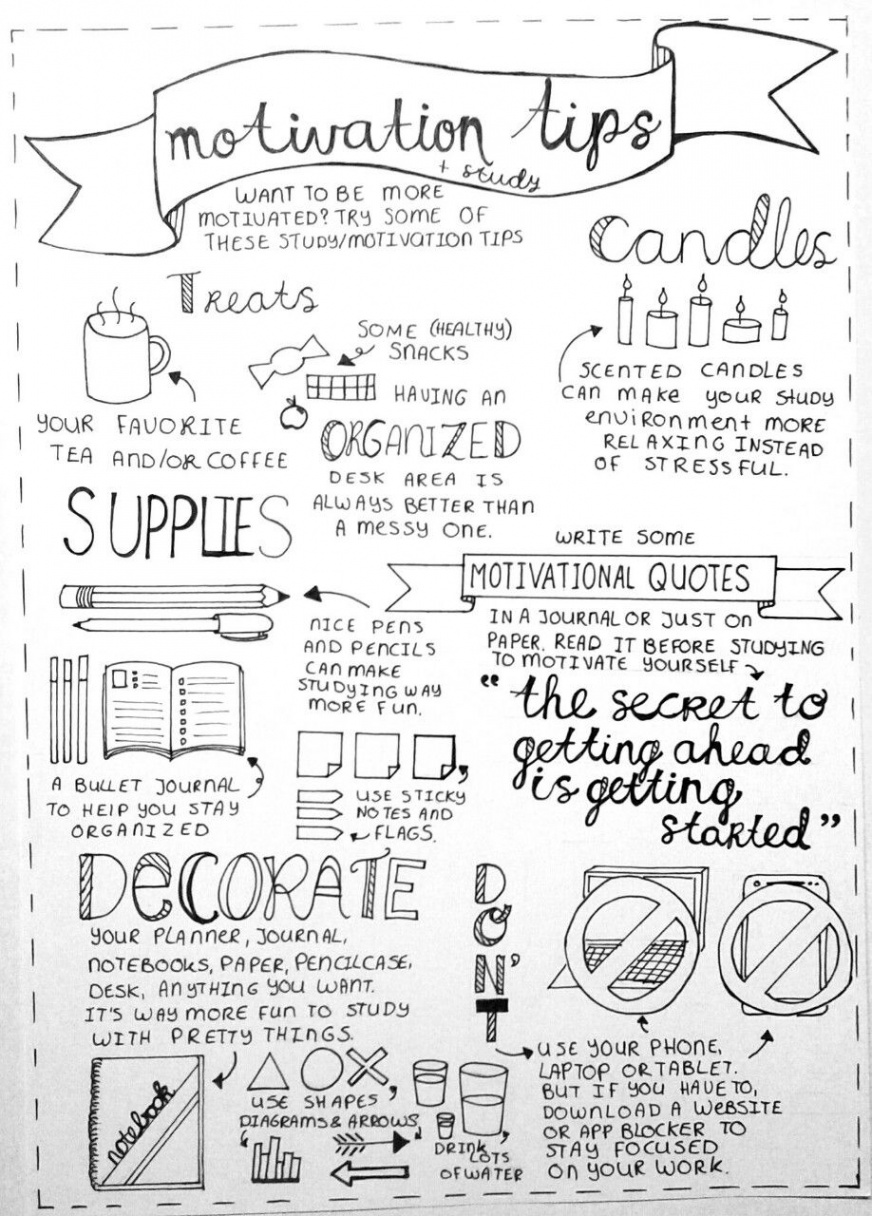 motivation tips
+ study
WANT TO BE MORE
MOTIVATED? TRY SOME OF
THESE STUDY/MOTIVATION TIPS
Candles
SCENTED CANDLES
CAN MAKE YOUR STUDY
ENVIRONMENT MORE
RELAXING INSTEAD
OF STRESSFUL.
Treats
YOUR FAVORITE
TEA AND/OR COFFEE
SOME (HEALTHY)
SNACKS
HAVING AN
ORGANIZED
DESK AREA IS
ALWAYS BETTER THAN
A MESSY ONE.
SUPPLIES
NICE PENS
AND PENCILS
CAN MAKE
STUDYING WAY
MORE FUN.
A BULLET JOURNAL
TO HELP YOU STAY
ORGANIZED
USE STICKY
NOTES AND
FLAGS.
WRITE SOME
MOTIVATIONAL QUOTES
IN A JOURNAL OR JUST ON
PAPER. READ IT BEFORE STUDYING
TO MOTIVATE YOURSELF
“the secret to
getting ahead
is getting
started”
DECORATE
YOUR PLANNER, JOURNAL,
NOTEBOOKS, PAPER, PENCILCASE,
DESK, ANYTHING YOU WANT.
IT'S WAY MORE FUN TO STUDY
WITH PRETTY THINGS.
notebook
USE SHAPES,
DIAGRAMS & ARROWS
DRINK LOTS
OF WATER
DON'T
USE YOUR PHONE,
LAPTOP OR TABLET.
BUT IF YOU HAVE TO,
DOWNLOAD A WEBSITE
OR APP BLOCKER TO
STAY FOCUSED
ON YOUR WORK.